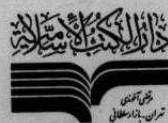 دار الكتب الاسلامية
مرتضى آخوندى
تهران - بازار سلطانى